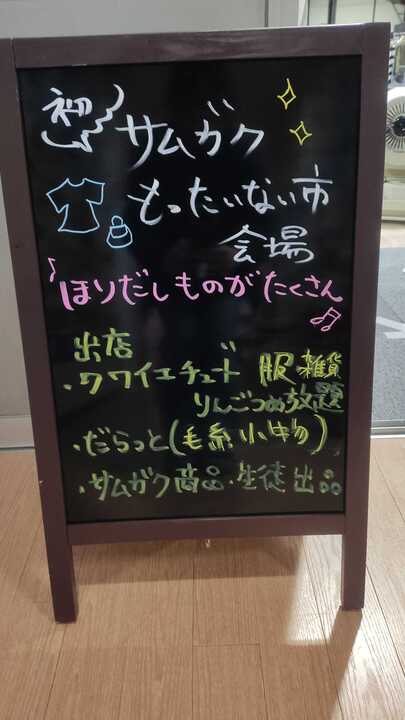 初
サムガク
もったいない市
会場
ほりだしものがたくさん
出店
・クワイエチュード 服雑貨
りんごつめ放題
・だらっと(毛糸小キカ)
・サムガク商品・生徒出品